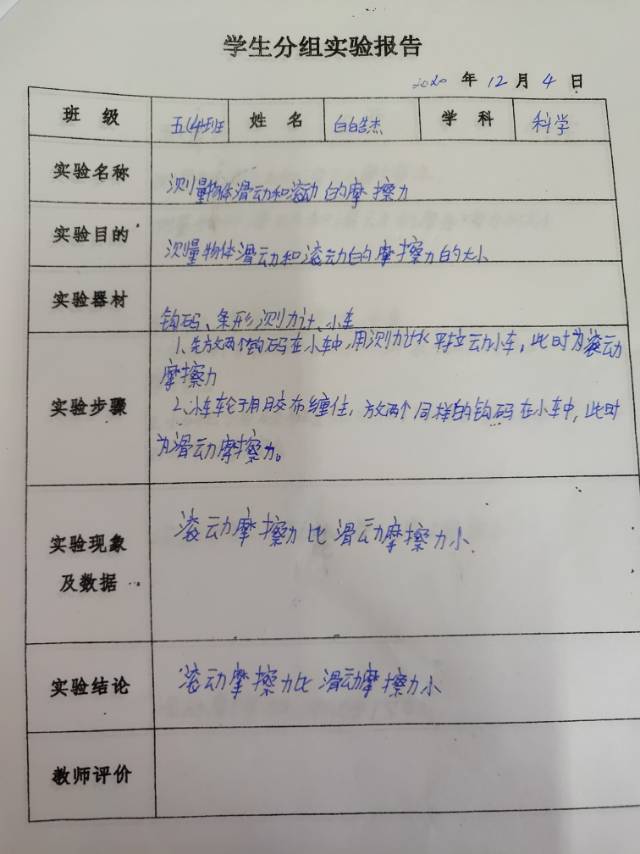 学生分组实验报告
2020 年 12 月 4 日
班 级 五(4)班 姓 名 白皓杰 学 科 科学
实验名称 测量物体滑动和滚动的摩擦力
实验目的 测量物体滑动和滚动的摩擦力的大小
实验器材 钩码、条形测力计、小车
1、先放两个钩码在小车中,用测力计水平拉动小车,此时为滚动
摩擦力
实验步骤 2、小车车轮子用胶布缠住,放两个同样的钩码在小车中,此时
为滑动摩擦力。
实验现象 滚动摩擦力比滑动摩擦力小.
及数据
实验结论 滚动摩擦力比滑动摩擦力小
教师评价